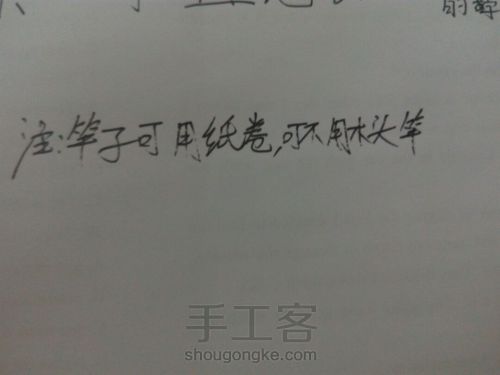 注:竿子可用纸卷,可不用木头竿
手工客
shougongke.com